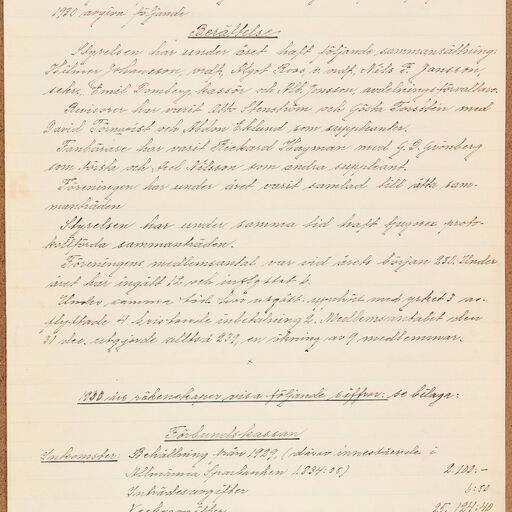 1930 avgiva följande
Berättelse
Styrelsen har under året haft följande sammansättning:
Hilmer Johansson, ordf, Algot Roos, v. ordf, Nils F. Jansson,
sekr, Emil Tomberg kassör och Alb. Jonsson, avdelningsförvaltare.
Revisorer har varit Otto Stenström och Gösta Forsström med
David Törnqvist och Abdon Eklund som suppleanter.
Fanbärare har varit Rickard Hagman med G. B. Grönberg
som första och Axel Nilsson som andra suppleant.
Föreningen har under året varit samlad till åtta sam-
manträden
Styrelsen har under samma tid haft tjugosex proto-
kollförda sammanträden.
Föreningens medlemsantal var vid årets början 230. Under
året har ingått 12 och inflyttat 6.
Under samma tid har utgått: upphört med yrket 3 av
flyttade 4 bristande inbetalning 2. Medlemsantalet den
31 dec. utgjorde alltså 239, en ökning av 9 medlemmar.
1930 års räkenskaper visa följande siffror: se bilaga:
Förbundskassan
Inkomster: Behållning från 1929, (därav innestående i
Allmänna Sparbanken 1.834:05) 2.100:-
Inträdesavgifter 6:50
Veckoavgifter 25.124:40